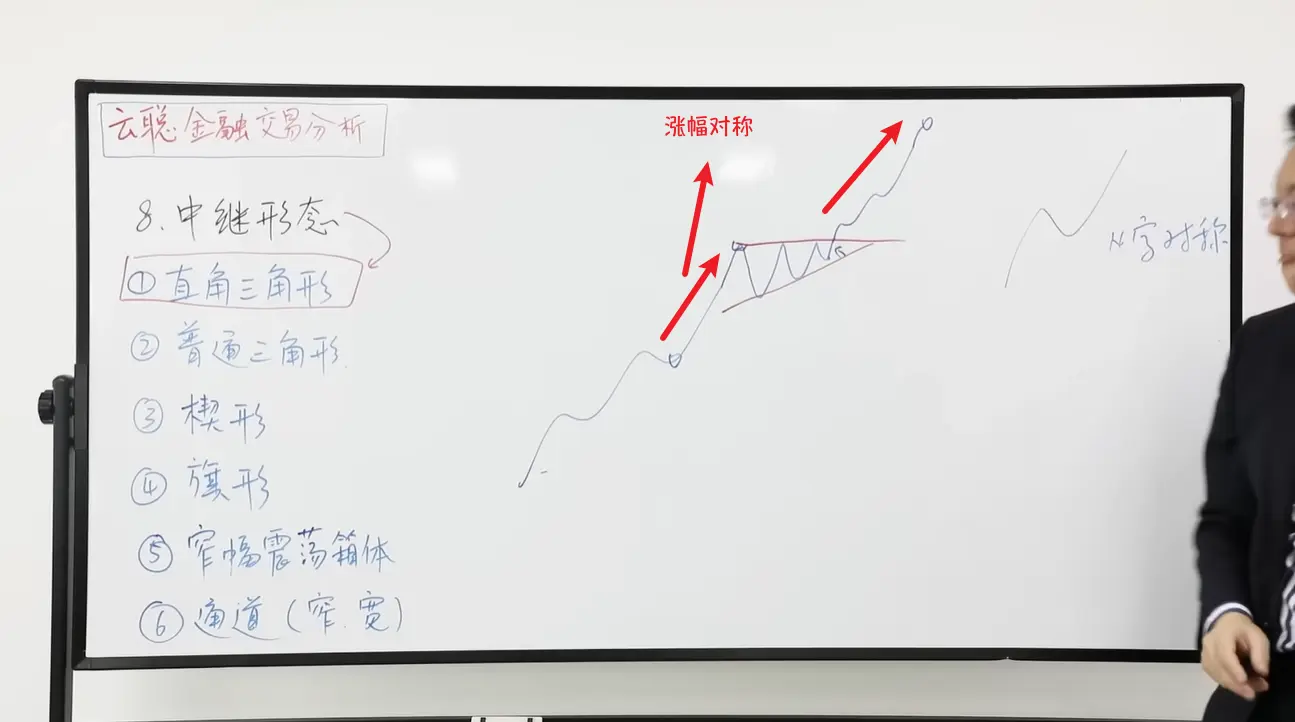 云聪金融交易分析
8.中继形态
①直角三角形
②普通三角形
③楔形
④旗形
⑤窄幅震荡箱体
⑥通道(窄.宽)
涨幅对称
N字对称